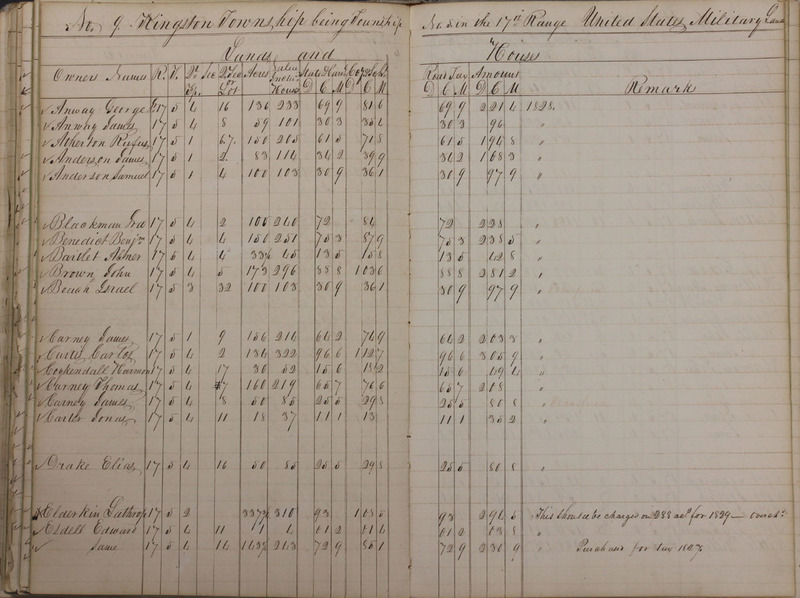 No. 9. Kingston Township being Township No. 5 in the 17th Range United States Military Land
Lands and Houses
Owners Names R. T. Qr Tp. Sec Acres Value State Road Tax Amount Remark
D C M D C M D C M D C M
Anway George 17 5 4 16 136 233 69 9 81 6 69 9 221 4 1828.
Anway James 17 5 4 8 59 101 30 3 35 4 30 3 96 "
Atherton Rufus 17 5 1 150 205 61 5 71 8 61 5 194 8 "
Anderson James 17 5 1 2 83 114 34 2 39 9 34 2 108 3 "
Anderson Samuel 17 5 1 4 100 103 30 9 36 1 30 9 97 9 "
Blackman Ira 17 5 4 2 100 240 72 84 72 228 "
Benedict Benjn 17 5 4 4 150 251 75 3 87 9 75 3 238 5 "
Bartlet Abner 17 5 4 4 33½ 45 13 5 15 8 13 5 42 8 "
Brown John 17 5 4 5 173 296 88 8 103 6 88 8 281 2 "
Israel 17 5 3 32 100 103 30 9 36 1 30 9 97 9 "
Carney James 17 5 1 9 156 214 64 2 74 9 64 2 203 3 "
Curtis Carlos 17 5 4 2 134 322 96 6 112 7 96 6 305 9 "
Coykendall Harmon 17 5 4 17 30 52 15 6 18 2 15 6 49 4 "
Carney Thomas 17 5 4 7 160 219 65 7 76 6 65 7 208 "
Carney James 17 5 4 8 50 85 25 5 29 8 25 5 80 8 "
Carter Jonas 17 5 4 11 18 37 11 1 13 11 1 35 2 "
Drake Elias 17 5 4 16 50 85 25 5 29 8 25 5 80 8 "
Elderkin Lathrop 17 5 2 310 93 108 5 93 294 5 This should be charged on 288 acs for 1829 —
Edward 17 5 4 11 4 4 01 2 01 4 01 2 03 8 "
Same 17 5 4 14 243 72 9 85 1 72 9 230 9 Purchased for tax 1827